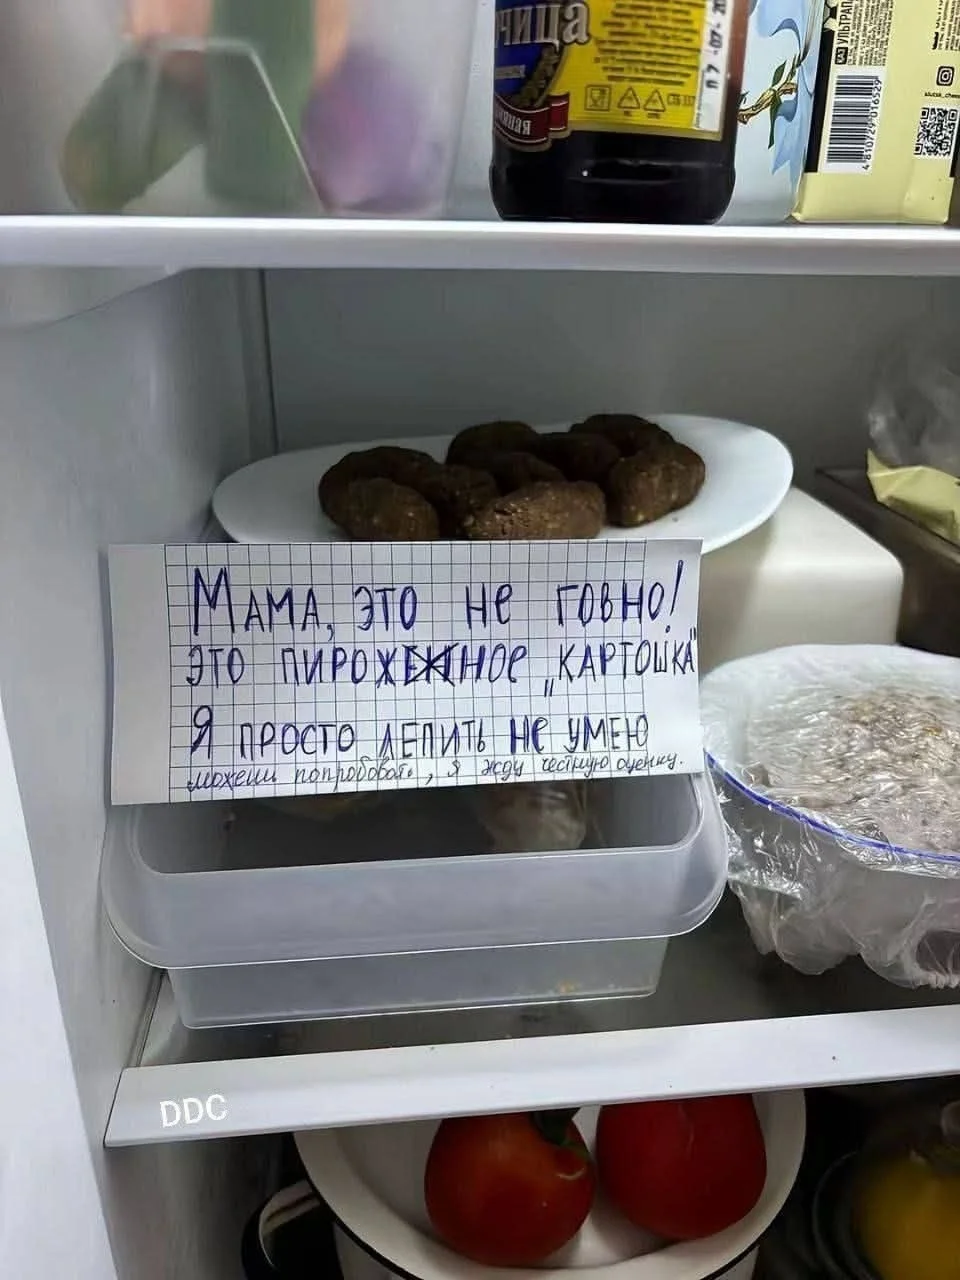 чица
СТБ
УЛЬТРАПА
4810729016529
МАМА, ЭТО НЕ ГОВНО!
ЭТО ПИРОЖНОЕ „КАРТОШКА"
Я ПРОСТО ЛЕПИТЬ НЕ УМЕЮ
можешь попробовать, я жду честную оценку.
DDC